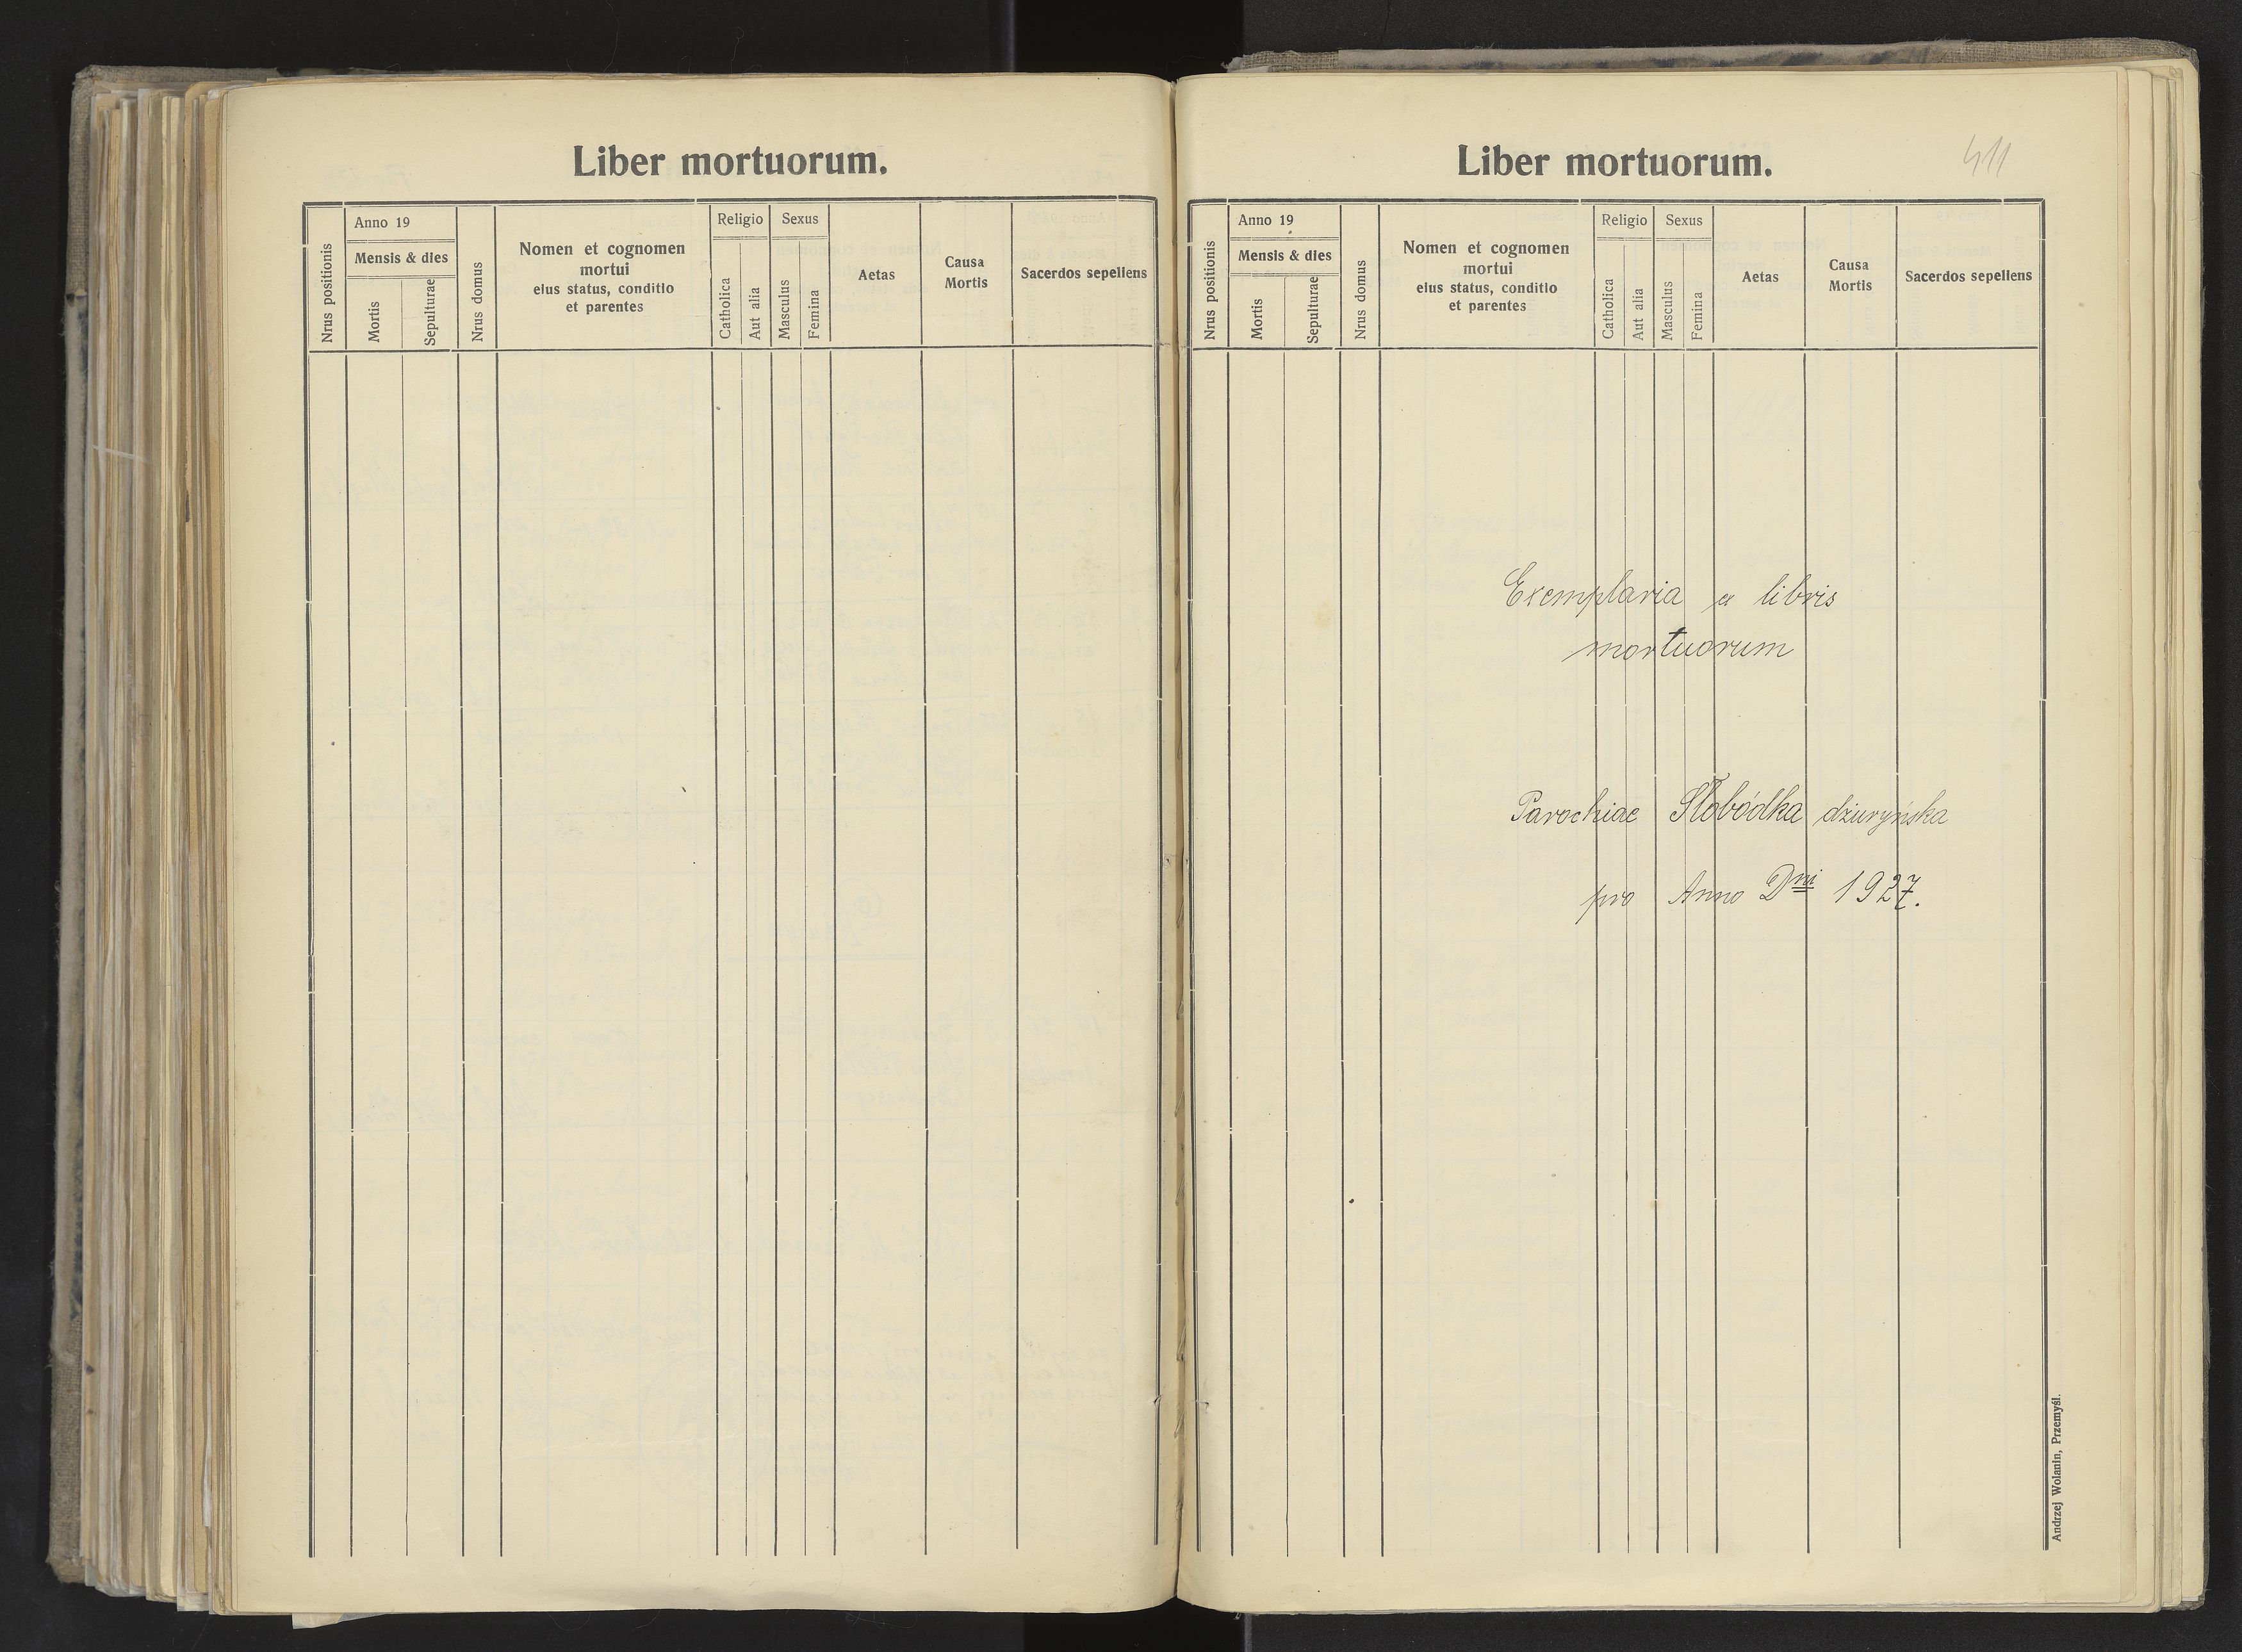 Liber mortuorum.
Nrus positionis
Anno 19
Mensis & dies
Mortis
Sepulturae
Nrus domus
Nomen et cognomen
mortui
eius status, conditio
et parentes
Religio
Catholica
Aut alia
Sexus
Masculus
Femina
Aetas
Causa
Mortis
Sacerdos sepeliens
Liber mortuorum.
411
Nrus positionis
Anno 19
Mensis & dies
Mortis
Sepulturae
Nrus domus
Nomen et cognomen
mortui
eius status, conditio
et parentes
Religio
Catholica
Aut alia
Sexus
Masculus
Femina
Aetas
Causa
Mortis
Sacerdos sepeliens
Exemplaria ex libris
mortuorum
Parochiae Słobódka dżuryńska
pro Anno Dni 1927.
Andrzej Wolanin, Przemyśl.